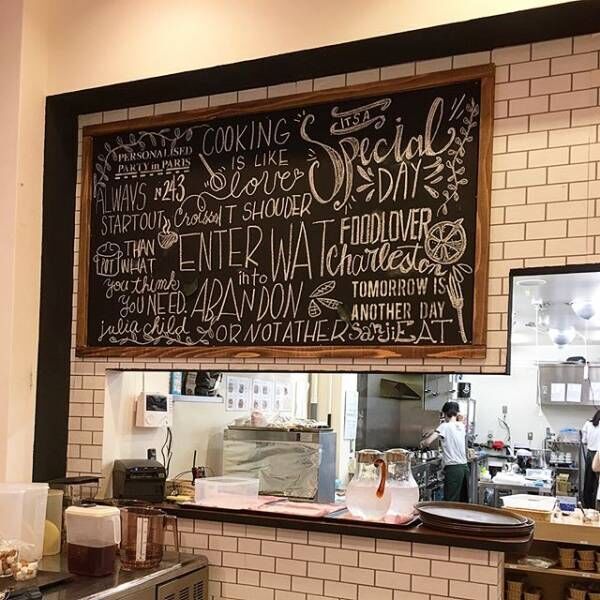 PERSONALISED
PARTY in PARIS
COOKING
IS LIKE
love
IT'S A
Special
DAY
ALWAYS N°243
START OUT Croissant T SHOUDER
THAN
WHAT
you think
YOU NEED.
julia child
ENTER WAT
into
ABANDON
OR NOT ATHER
FOODLOVER
Charleston
TOMORROW IS
ANOTHER DAY
Sanji EAT